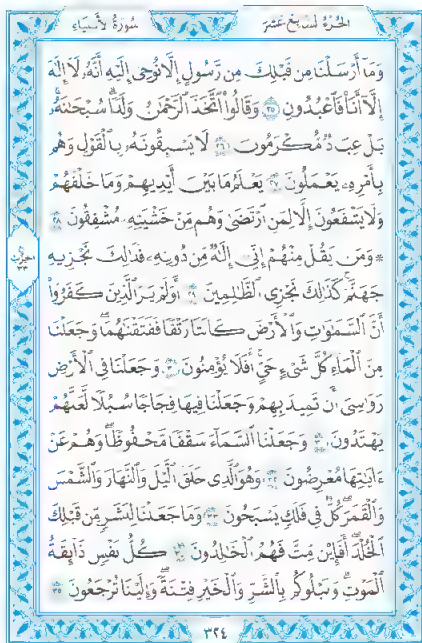 سُورَةُ الأَنبِيَاءِ الجُزْءُ السَّابِعَ عَشَرَ
وَمَآ أَرْسَلْنَا مِن قَبْلِكَ مِن رَّسُولٍ إِلَّا نُوحِىٓ إِلَيْهِ أَنَّهُۥ لَآ إِلَٰهَ
إِلَّآ أَنَا۠ فَٱعْبُدُونِ ٢٥ وَقَالُوا۟ ٱتَّخَذَ ٱلرَّحْمَٰنُ وَلَدًا ۗ سُبْحَٰنَهُۥ ۚ
بَلْ عِبَادٌ مُّكْرَمُونَ ٢٦ لَا يَسْبِقُونَهُۥ بِٱلْقَوْلِ وَهُم
بِأَمْرِهِۦ يَعْمَلُونَ ٢٧ يَعْلَمُ مَا بَيْنَ أَيْدِيهِمْ وَمَا خَلْفَهُمْ
وَلَا يَشْفَعُونَ إِلَّا لِمَنِ ٱرْتَضَىٰ وَهُم مِّنْ خَشْيَتِهِۦ مُشْفِقُونَ ٢٨
۞ وَمَن يَقُلْ مِنْهُمْ إِنِّىٓ إِلَٰهٌ مِّن دُونِهِۦ فَذَٰلِكَ نَجْزِيهِ
جَهَنَّمَ ۚ كَذَٰلِكَ نَجْزِى ٱلظَّٰلِمِينَ ٢٩ أَوَلَمْ يَرَ ٱلَّذِينَ كَفَرُوٓا۟
أَنَّ ٱلسَّمَٰوَٰتِ وَٱلْأَرْضَ كَانَتَا رَتْقًا فَفَتَقْنَٰهُمَا ۖ وَجَعَلْنَا
مِنَ ٱلْمَآءِ كُلَّ شَىْءٍ حَىٍّ ۖ أَفَلَا يُؤْمِنُونَ ٣٠ وَجَعَلْنَا فِى ٱلْأَرْضِ
رَوَٰسِىَ أَن تَمِيدَ بِهِمْ وَجَعَلْنَا فِيهَا فِجَاجًا سُبُلًا لَّعَلَّهُمْ
يَهْتَدُونَ ٣١ وَجَعَلْنَا ٱلسَّمَآءَ سَقْفًا مَّحْفُوظًا ۖ وَهُمْ عَنْ
ءَايَٰتِهَا مُعْرِضُونَ ٣٢ وَهُوَ ٱلَّذِى خَلَقَ ٱلَّيْلَ وَٱلنَّهَارَ وَٱلشَّمْسَ
وَٱلْقَمَرَ ۖ كُلٌّ فِى فَلَكٍ يَسْبَحُونَ ٣٣ وَمَا جَعَلْنَا لِبَشَرٍ مِّن قَبْلِكَ
ٱلْخُلْدَ ۖ أَفَإِي۟ن مِّتَّ فَهُمُ ٱلْخَٰلِدُونَ ٣٤ كُلُّ نَفْسٍ ذَآئِقَةُ
ٱلْمَوْتِ ۗ وَنَبْلُوكُم بِٱلشَّرِّ وَٱلْخَيْرِ فِتْنَةً ۖ وَإِلَيْنَا تُرْجَعُونَ ٣٥
الحزب
٣٣
٣٢٤